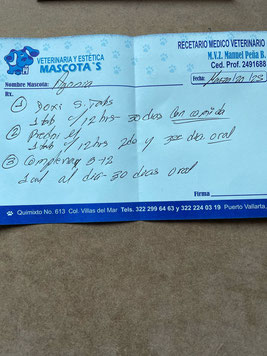 VETERINARIA Y ESTÉTICA
MASCOTA´S
RECETARIO MEDICO VETERINARIO
M.V.Z. Manuel Peña B.
Ced. Prof. 2491688
Nombre Mascota:
Fecha:
Rx.
① Doxi
1 tab c/12hrs - 30 dias Con comida
②
1 tab c/12hrs oral
③ B-12
1 al dia - 30 dias oral
Firma
Quimixto No. 613 Col. Villas del Mar Tels. 322 299 64 63 y 322 224 03 19 Puerto Vallarta,